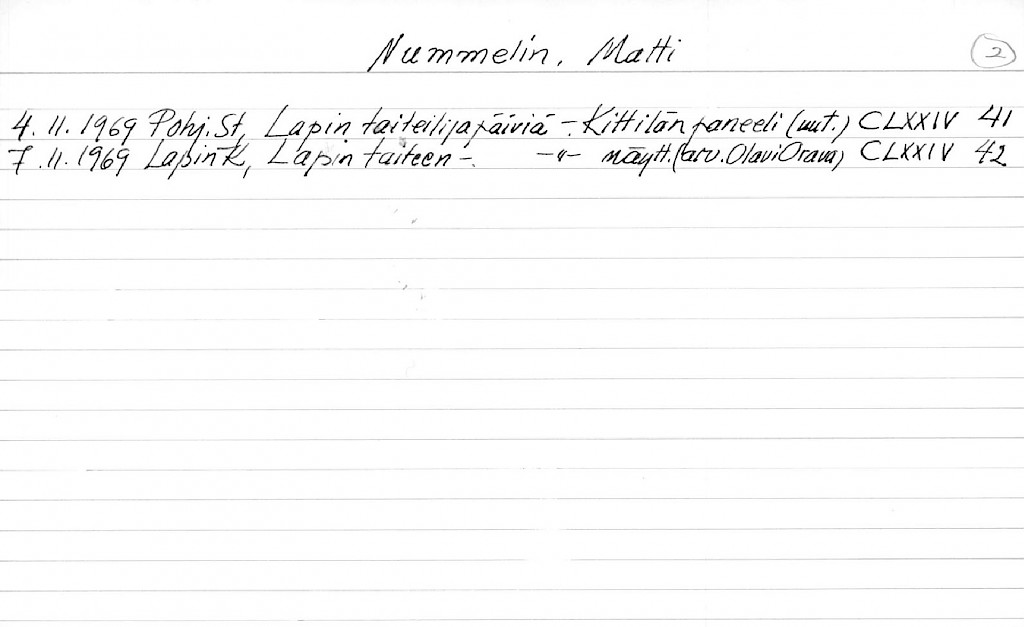 Nummelin, Matti 2
4.11.1969 Pohj.St, Lapin taiteilijapäiviä - Kittilän paneeli (uut.) CLXXIV 41
7.11.1969 Lapin K, Lapin taiteen - -"- näytt. (arv. Olavi Orava) CLXXIV 42